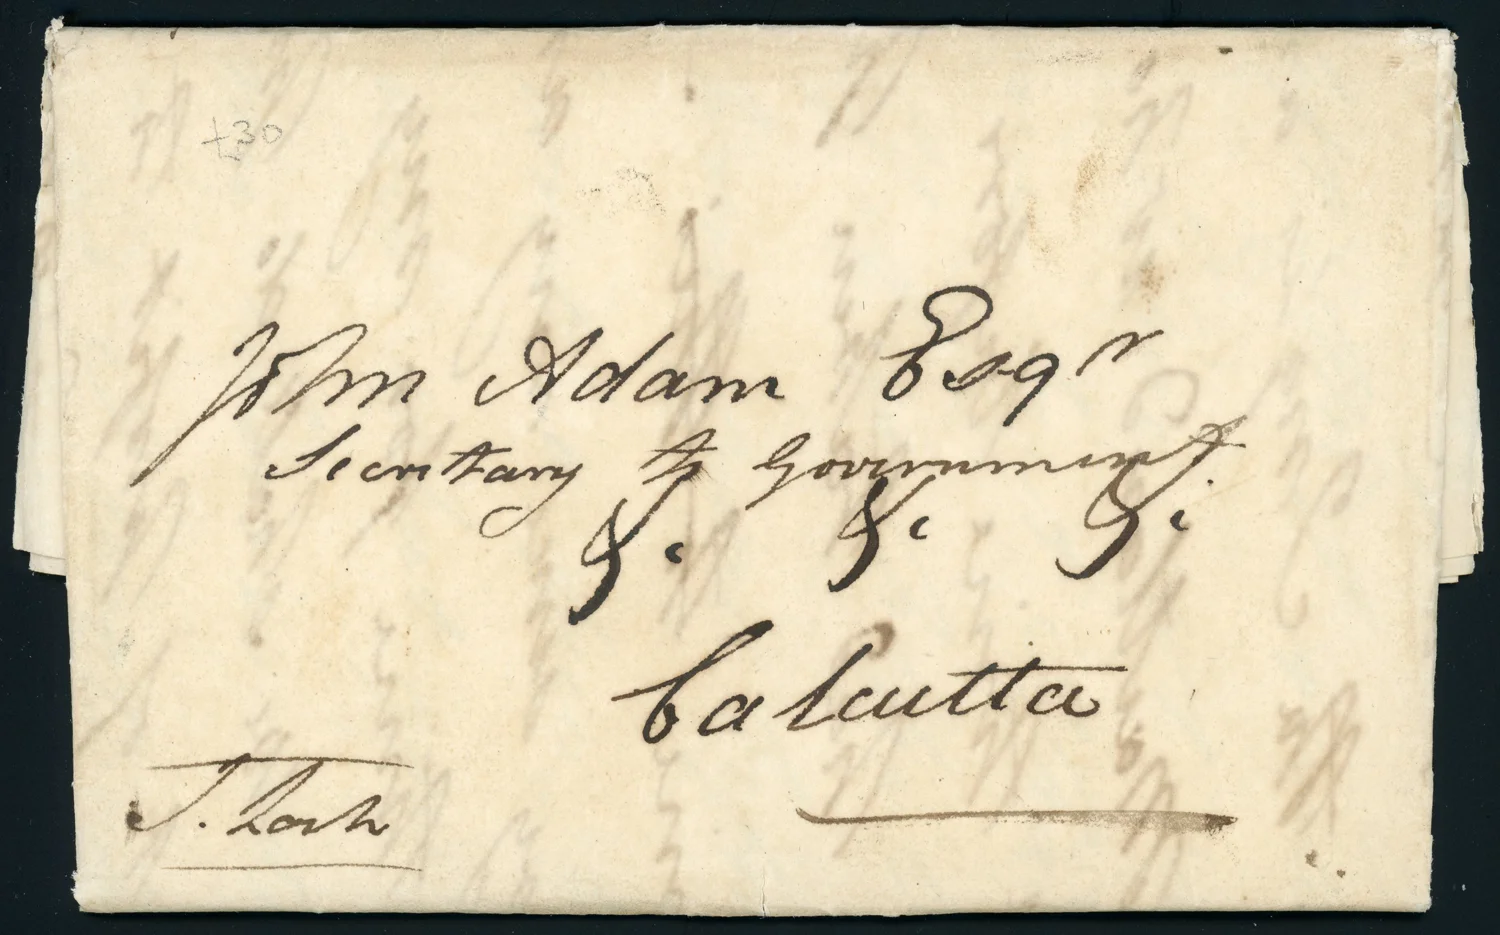 £30
John Adam Esqr
Secretary to Government.
&c &c &c
Calcutta
J. Loch